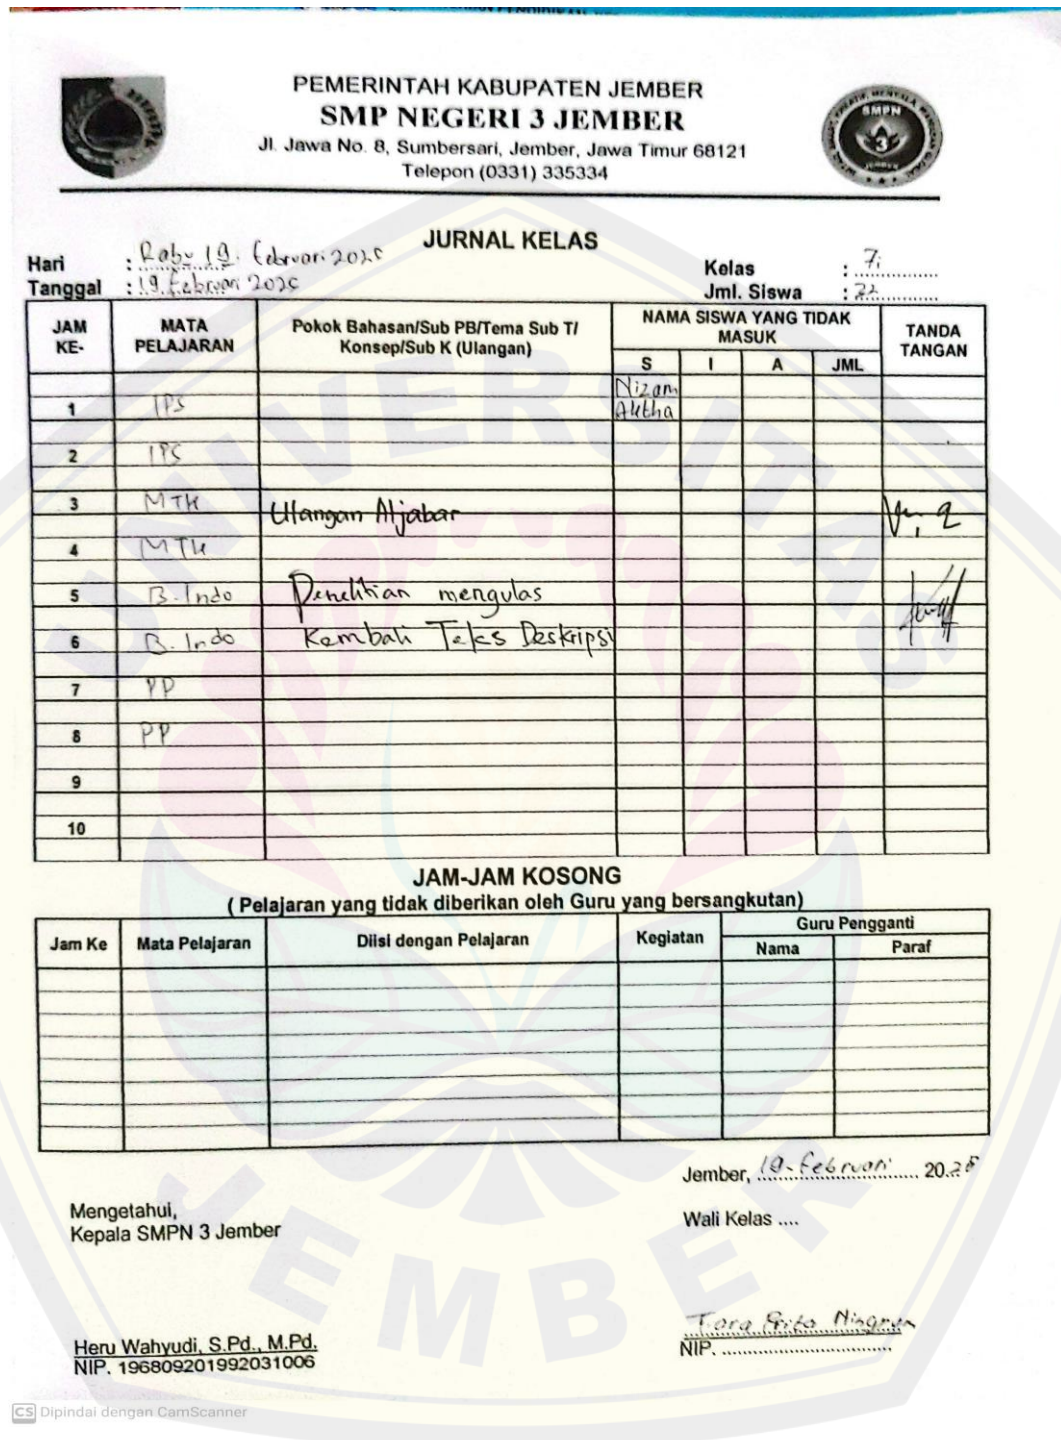 PEMERINTAH KABUPATEN JEMBER
SMP NEGERI 3 JEMBER
Jl. Jawa No. 8, Sumbersari, Jember, Jawa Timur 68121
Telepon (0331) 335334
SMPN
3
JEMBER
JURNAL KELAS
Hari : Rabu 19. Februari 2025
Tanggal : 19. Februari 2025
Kelas : 7i
Jml. Siswa : 32
JAM KE- MATA PELAJARAN Pokok Bahasan/Sub PB/Tema Sub T/ Konsep/Sub K (Ulangan) NAMA SISWA YANG TIDAK MASUK TANDA TANGAN
S I A JML
Nizam
1 IPS Aktha
2 IPS
3 MTK Ulangan Aljabar
4 MTK
5 B. Indo Penelitian mengulas
6 B. Indo Kembali Teks Deskripsi
7 PP
8 PP
9
10
JAM-JAM KOSONG
( Pelajaran yang tidak diberikan oleh Guru yang bersangkutan)
Jam Ke Mata Pelajaran Diisi dengan Pelajaran Kegiatan Guru Pengganti
Nama Paraf
Jember, 19-februari 2025
Mengetahui,
Kepala SMPN 3 Jember
Wali Kelas ....
Heru Wahyudi, S.Pd., M.Pd.
NIP. 196809201992031006
NIP. ................................
UNIVERSITAS
JEMBER
CS Dipindai dengan CamScanner